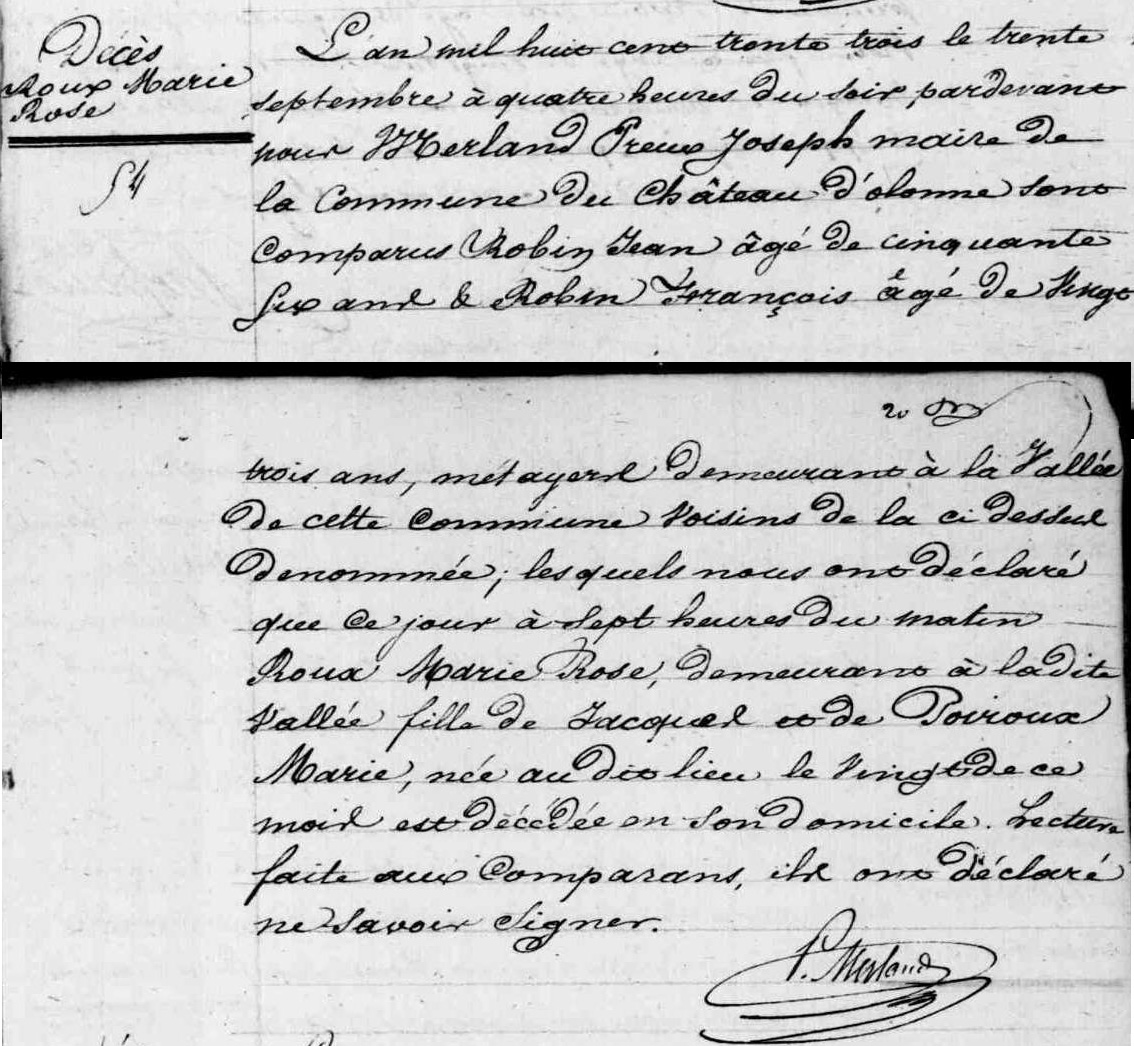 Décès
Roux Marie
Rose
54
L'an mil huit cent trente trois le trente
septembre à quatre heures du soir, pardevant
nour Merland Preux Joseph maire de
la Commune du Château d'olonne sont
Comparus Robin Jean âgé de cinquante
six ans & Robin François âgé de Vingt
20
trois ans, métayers demeurant à la Vallée
de cette Commune Voisins de la ci dessus
denommée; lesquels nous ont déclaré
que ce jour à sept heures du matin
Roux Marie Rose, demeurant à la dite
Vallée fille de Jacques et de Poiroux
Marie, née au dit lieu le Vingt de ce
mois est décédée en son domicile. Lecture
faite aux Comparans, ils ont déclaré
ne savoir Signer.
P. Merland